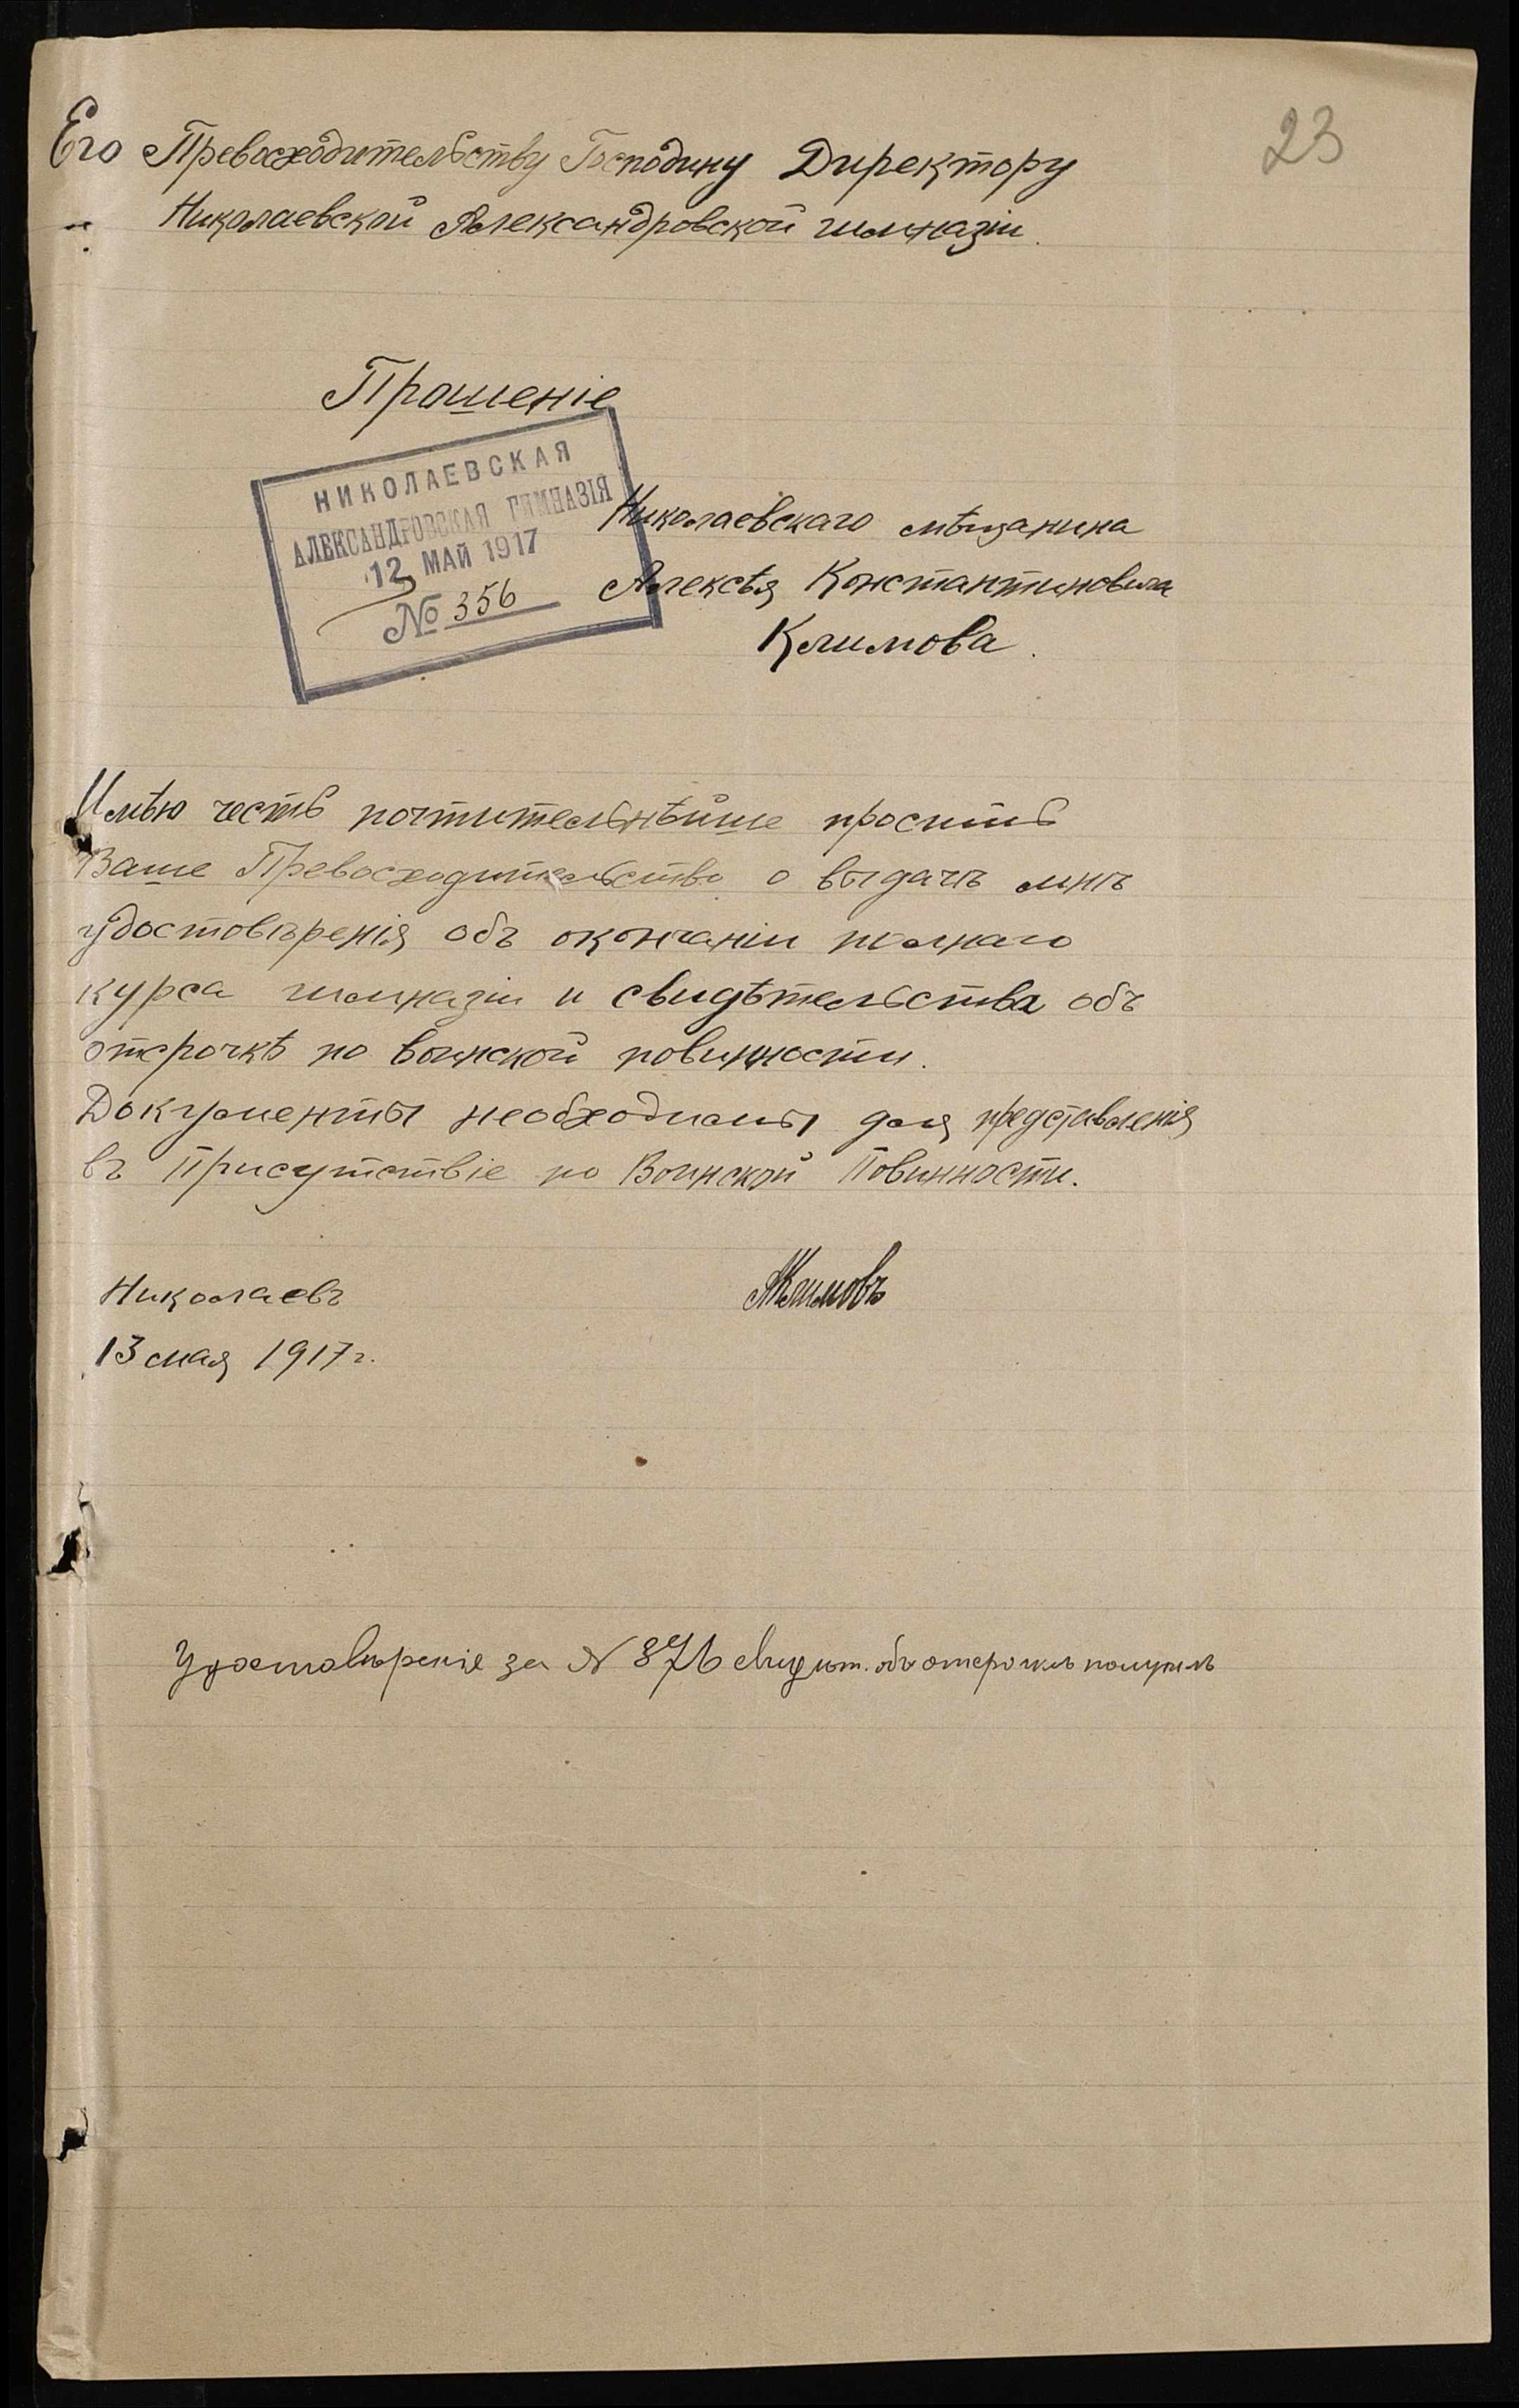 23
Его Превосходительству Господину Директору
Николаевской Александровской гимназіи.
Прошеніе
НИКОЛАЕВСКАЯ
АЛЕКСАНДРОВСКАЯ ГИМНАЗІЯ
12 МАЙ 1917
№ 356
Николаевскаго мѣщанина
Алексѣя Константиновича
Климова.
Имѣю честь почтительнѣйше просить
Ваше Превосходительство о выдачѣ мнѣ
удостовѣренія объ окончаніи полнаго
курса гимназіи и свидѣтельства объ
отсрочкѣ по воинской повинности.
Документы необходимы для представленія
въ Присутствіе по Воинской Повинности.
Николаевъ
АКлимовъ
13 мая 1917 г.
Удостовѣреніе за № 876 свидѣт. объ отсрочкѣ получилъ